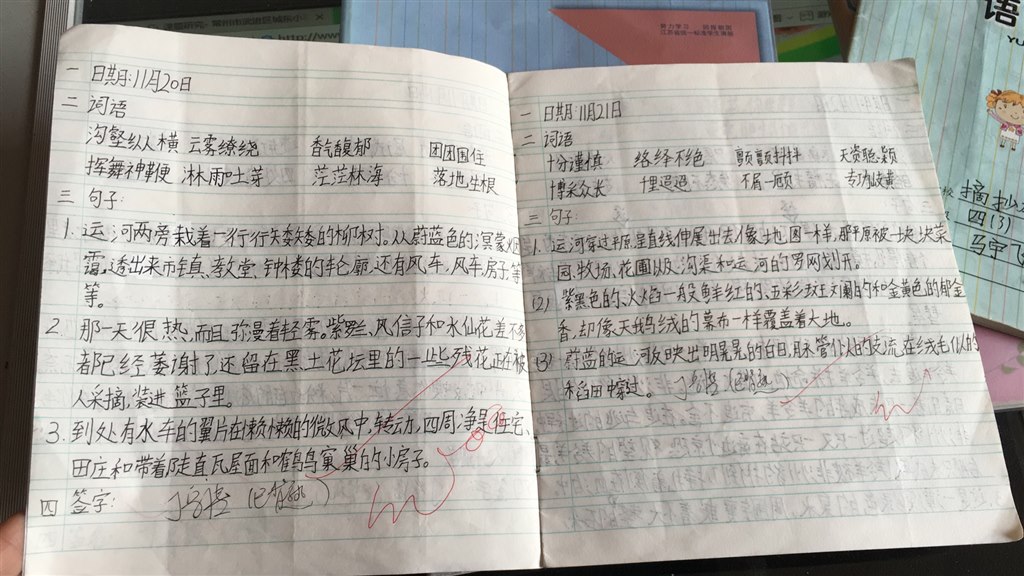 一 日期:11月20日
二 词语
沟壑纵横 云雾缭绕 香气馥郁 团团围住
挥舞神鞭 淋雨吐芽 茫茫林海 落地生根
三 句子:
1. 运河两旁栽着一行行矮矮的柳树。从蔚蓝色的溟蒙烟
霭,透出来市镇、教堂、钟楼的轮廓,还有风车,风车房子等
等。
2. 那一天很热,而且弥漫着轻雾。紫罗兰、风信子和水仙花差不多
都已经萎谢了还留在黑土花坛里的一些残花正在被
人采摘,装进篮子里。
3. 到处有水车的翼片在懒懒的微风中,转动,四周净是住宅、
田庄和带着陡直瓦屋面和鹳鸟窠巢的小房子。
四 签字: (已背过)
一 日期:11月21日
二 词语
十分谨慎 络绎不绝 颤颤抖抖 天资聪颖
博采众长 千里迢迢 不屑一顾 专攻岐黄
三 句子:
1. 运河穿过平原,呈直线伸展出去像地图一样,那平原被一块块菜
园、牧场、花圃以及沟渠和运河的罗网划开。
(2) 紫黑色的、火焰一般鲜红的、五彩斑斓的和金黄色的郁金
香,却像天鹅绒的幕布一样覆盖着大地。
(3) 蔚蓝的运河反映出明晃晃的白日,用水管似的交流,在绒毛似的
稻田中穿过。 (已背过)
努力学习 报答祖国
江苏省统一标准学生课簿
http://www
语
YU
摘抄
四(3)
马宇飞